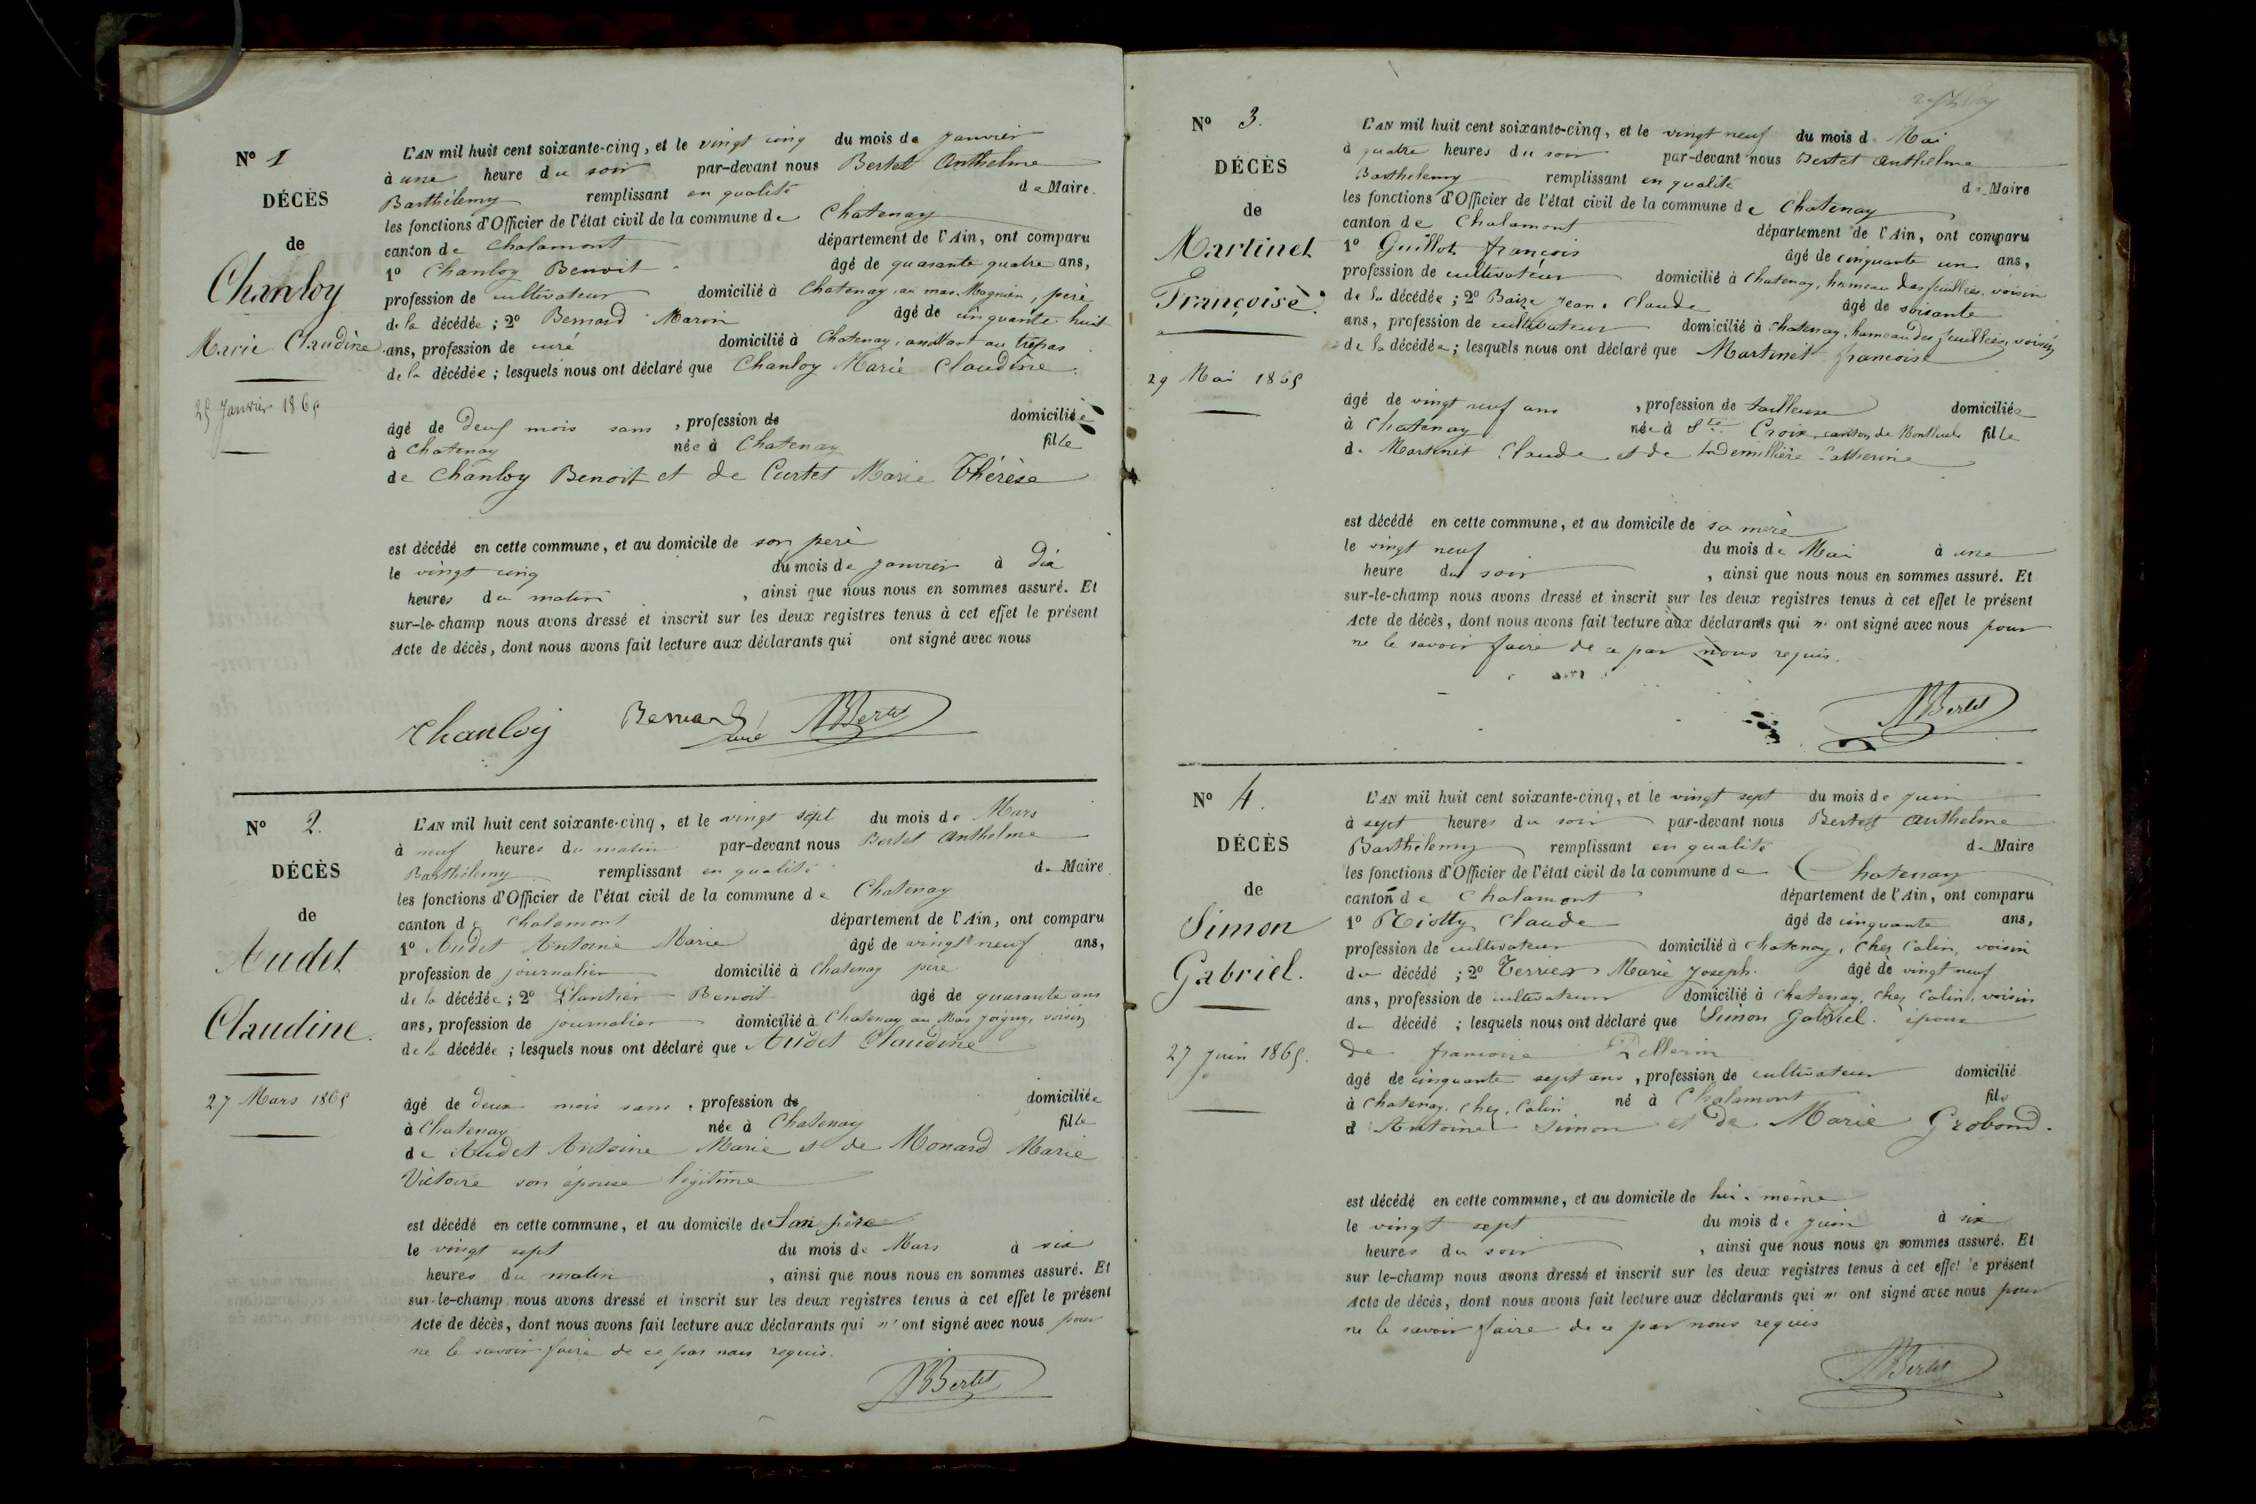 N° 1
DÉCÈS
de
Chanloy
Marie Claudine
25 Janvier 1865
L'AN mil huit cent soixante-cinq, et le vingt cinq du mois de Janvier
à une heure du soir par-devant nous Bertet Anthelme
Barthélemy remplissant en qualité de Maire
les fonctions d'Officier de l'état civil de la commune de Chatenay
canton de Chalamont département de l'Ain, ont comparu
1° Chanloy Benoit âgé de quarante quatre ans,
profession de cultivateur domicilié à Chatenay au mas Magnien, père
de la décédée ; 2° Bernard Marin âgé de cinquante huit
ans, profession de curé domicilié à Chatenay, au trépas
de la décédée ; lesquels nous ont déclaré que Chanloy Marie Claudine
âgé de deux mois sans , profession de domiciliée
à Chatenay née à Chatenay fille
de Chanloy Benoit et de Curtet Marie Thérèse
est décédé en cette commune, et au domicile de son père
le vingt cinq du mois de Janvier à dix
heures du matin , ainsi que nous nous en sommes assuré. Et
sur-le-champ nous avons dressé et inscrit sur les deux registres tenus à cet effet le présent
Acte de décès, dont nous avons fait lecture aux déclarants qui ont signé avec nous
Chanloy Bernard curé ABBertet
N° 2.
DÉCÈS
de
Audet
Claudine.
27 Mars 1865
L'AN mil huit cent soixante-cinq, et le vingt sept du mois de Mars
à neuf heures du matin par-devant nous Bertet Anthelme
Barthélemy remplissant en qualité de Maire
les fonctions d'Officier de l'état civil de la commune de Chatenay
canton de Chalamont département de l'Ain, ont comparu
1° Audet Antoine Marie âgé de vingt neuf ans,
profession de journalier domicilié à Chatenay père
de la décédée ; 2° Plantier Benoit âgé de quarante ans
ans, profession de journalier domicilié à Chatenay au Mas Joigny, voisin
de la décédée ; lesquels nous ont déclaré que Audet Claudine
âgé de deux mois sans , profession de domiciliée
à Chatenay née à Chatenay fille
de Audet Antoine Marie et de Monard Marie
Victoire son épouse légitime
est décédé en cette commune, et au domicile de Son père
le vingt sept du mois de Mars à six
heures du matin , ainsi que nous nous en sommes assuré. Et
sur-le-champ nous avons dressé et inscrit sur les deux registres tenus à cet effet le présent
Acte de décès, dont nous avons fait lecture aux déclarants qui n'ont signé avec nous pour
ne le savoir faire de ce par nous requis.
ABBertet
N° 3.
DÉCÈS
de
Martinet
Françoise.
29 Mai 1865
L'AN mil huit cent soixante-cinq, et le vingt neuf du mois de Mai
à quatre heures du soir par-devant nous Bertet Anthelme
Barthelemy remplissant en qualité de Maire
les fonctions d'Officier de l'état civil de la commune de Chatenay
canton de Chalamont département de l'Ain, ont comparu
1° Guillot françois âgé de cinquante un ans,
profession de cultivateur domicilié à Chatenay, hameau des feuillées, voisin
de la décédée ; 2° Baize Jean Claude âgé de soixante
ans, profession de cultivateur domicilié à Chatenay, hameau des feuillées, voisin
de la décédée ; lesquels nous ont déclaré que Martinet francoise
âgé de vingt neuf ans , profession de tailleuse domiciliée
à Chatenay née à Ste Croix, canton de Montluel fille
de Martinet Claude et de Catherine
est décédé en cette commune, et au domicile de sa mère
le vingt neuf du mois de Mai à une
heure du soir , ainsi que nous nous en sommes assuré. Et
sur-le-champ nous avons dressé et inscrit sur les deux registres tenus à cet effet le présent
Acte de décès, dont nous avons fait lecture aux déclarants qui n'ont signé avec nous pour
ne le savoir faire de ce par nous requis.
ABBertet
N° 4.
DÉCÈS
de
Simon
Gabriel.
27 Juin 1865.
L'AN mil huit cent soixante-cinq, et le vingt sept du mois de Juin
à sept heures du soir par-devant nous Bertet Anthelme
Barthélemy remplissant en qualité de Maire
les fonctions d'Officier de l'état civil de la commune de Chatenay
canton de Chalamont département de l'Ain, ont comparu
1° Claude âgé de cinquante ans,
profession de cultivateur domicilié à Chatenay, Chez Calin, voisin
du décédé ; 2° Terrier Marie Joseph. âgé de vingt neuf
ans, profession de cultivateur domicilié à Chatenay, chez Calin, voisin
du décédé ; lesquels nous ont déclaré que Simon Gabriel. époux
de francoise Pellerin
âgé de cinquante sept ans , profession de cultivateur domicilié
à Chatenay, chez Calin né à Chalamont fils
d'Antoine Simon et de Marie Grobond.
est décédé en cette commune, et au domicile de lui-même
le vingt sept du mois de Juin à six
heures du soir , ainsi que nous nous en sommes assuré. Et
sur le-champ nous avons dressé et inscrit sur les deux registres tenus à cet effet le présent
Acte de décès, dont nous avons fait lecture aux déclarants qui n'ont signé avec nous pour
ne le savoir faire de ce par nous requis
ABBertet